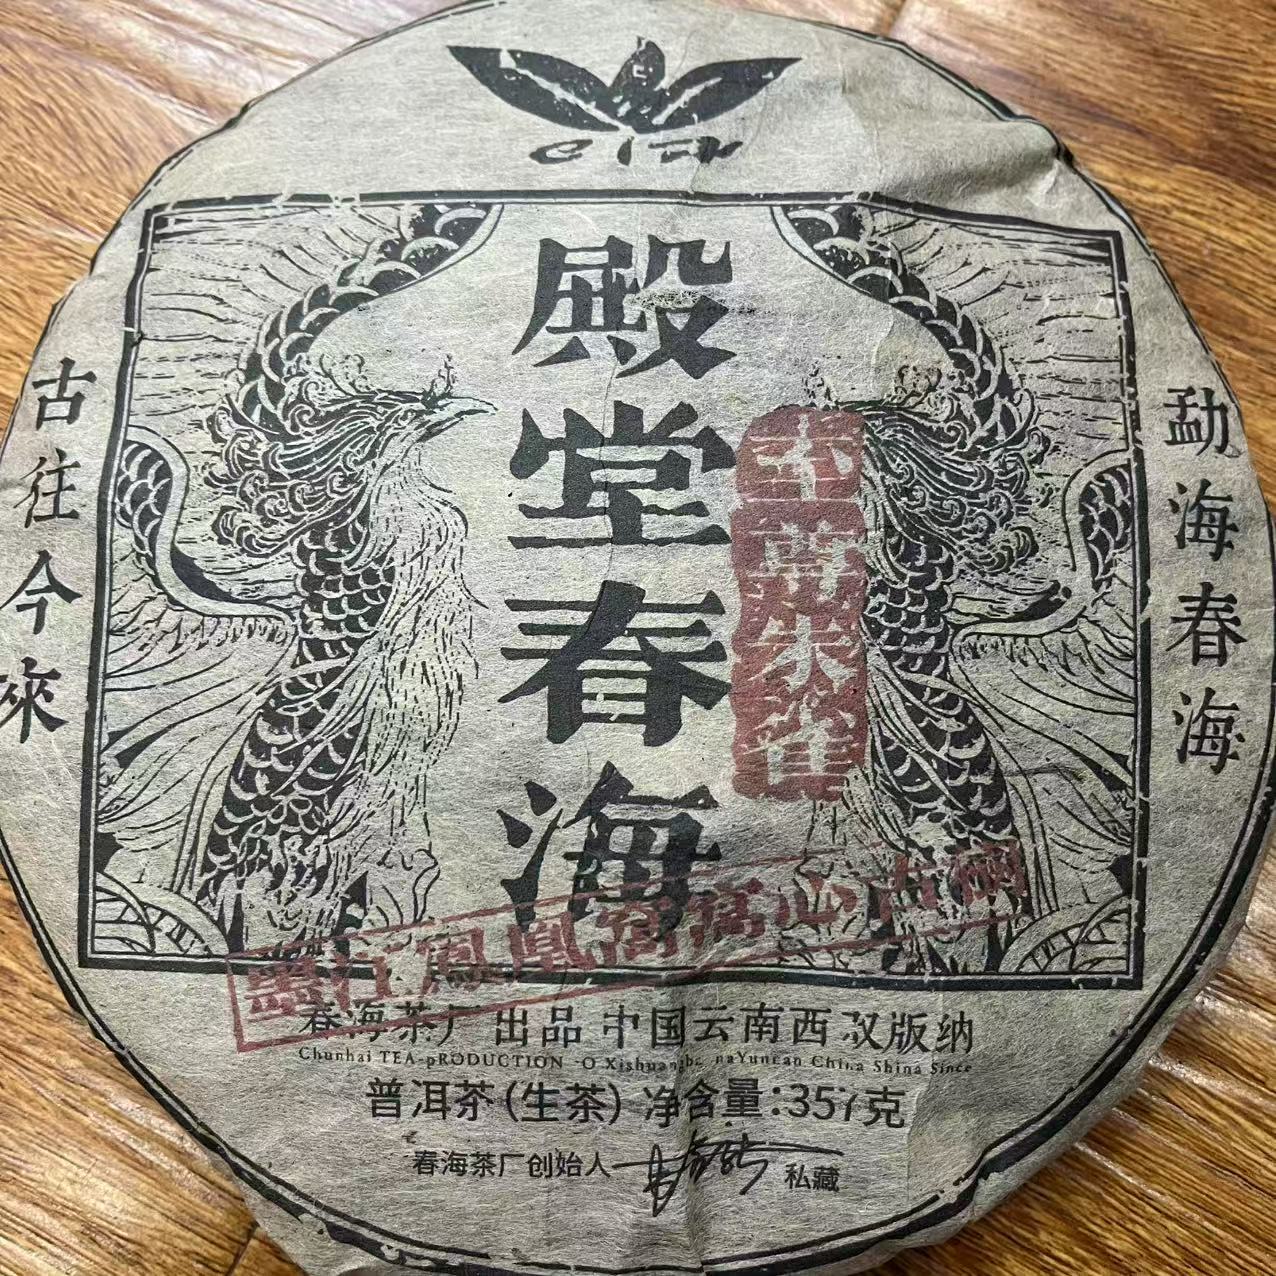 殿堂春海
古往今來
勐海春海
木尊朱雀
墨江凤凰窝窝心古树
春海茶厂出品 中国云南西双版纳
Chunhai TEA-pRODUCTION -O Xishuangba naYunnan China Shina Since
普洱茶(生茶) 净含量:357克
春海茶厂创始人
私藏